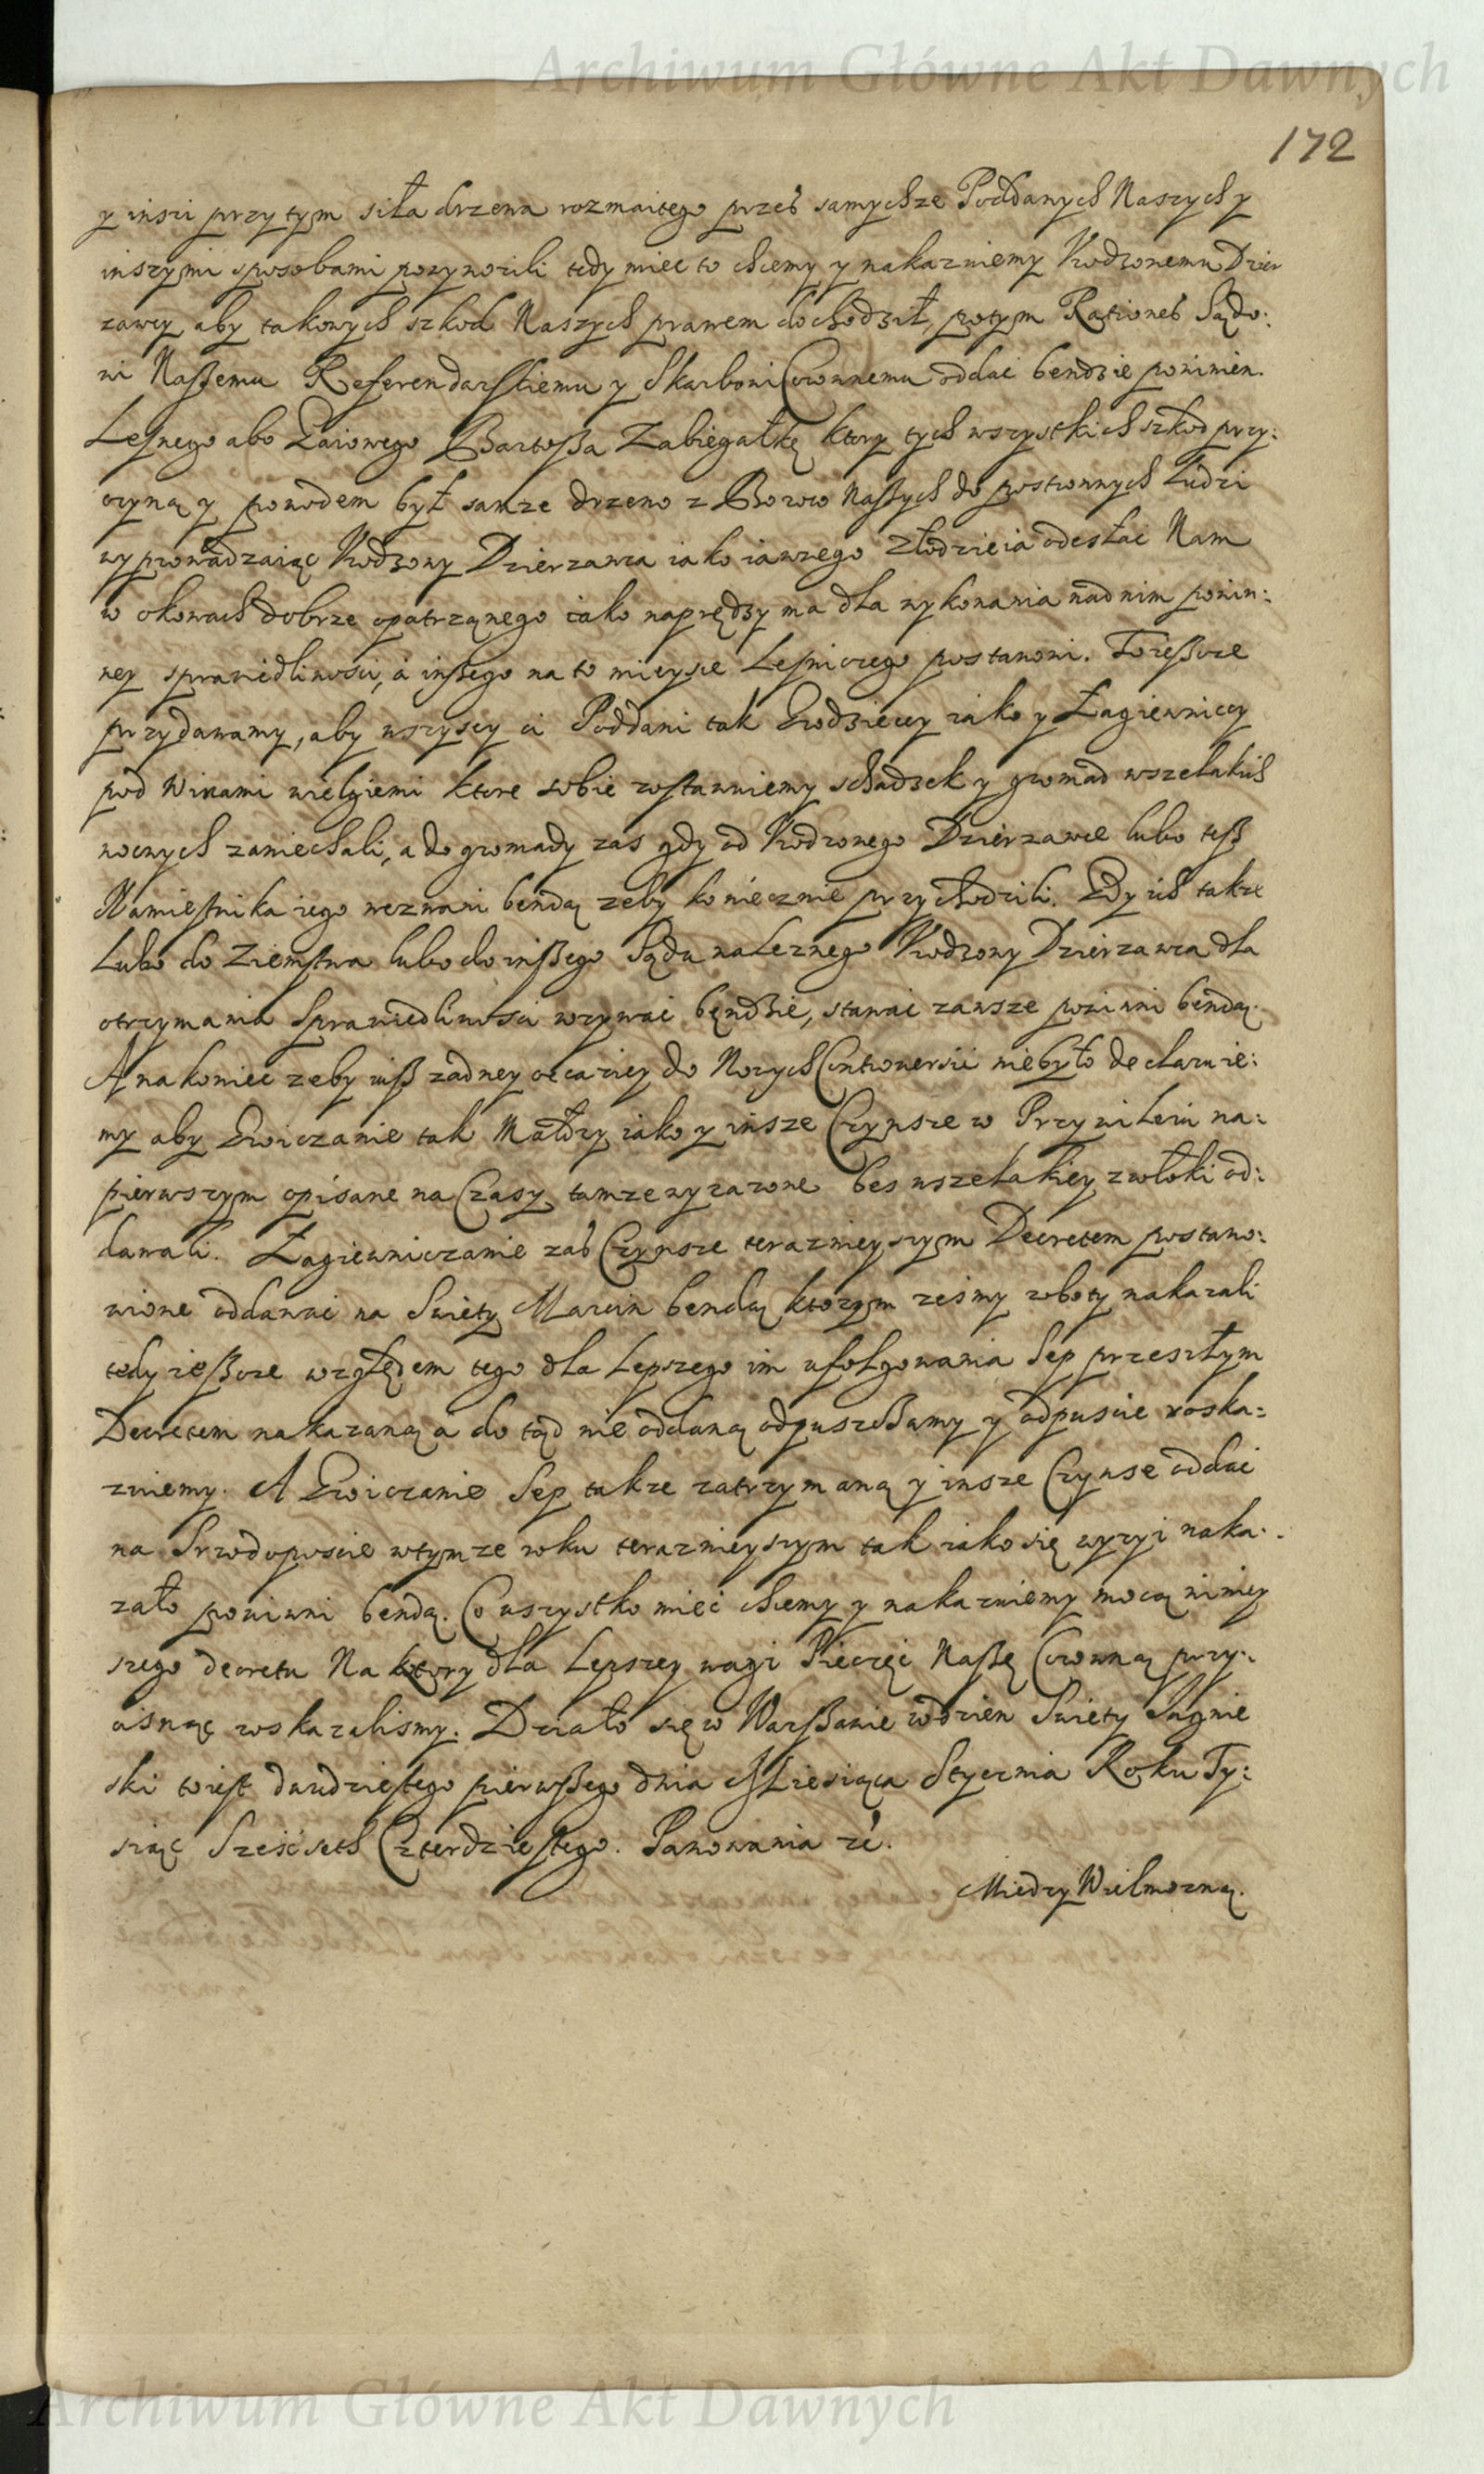 Archiwum Główne Akt Dawnych
172
y inszi przytym siła drzewa rozmaitego przes samychze Poddanych Naszych y
inszymi sposobami poczynorili tedy miec to chcemy y nakazuiemy Urodzonemu Dzier
zawcy aby takowych szkod Naszych prawem dochodził, potym Rationes Sądo:
wi Naßemu Referendarskiemu y Skarbowi Coronnemu oddac bendzie powinien.
Lesnego abo Gaiowego Bartoßa Zabiegałkę ktory tych wszystkich szkod przy:
czyną y powodem był samze drzewo z Borow Naßych do postronnych Ludzi
wyprowadzaiąc Urodzony Dzierzawca iako iawnego złodzieia odesłac Nam
w okowach dobrze opatrzonego iako naprędzy ma dla wykonania nad nim powin:
ney sprawiedliwosci, a inßego na to mieysce Lesniczego postanowi. To ießcze
przydawamy, aby wszyscy ci Poddani tak Grodzieccy iako y Łagiewniccy
pod Winami wielgiemi ktore sobie zostawuiemy schadzek y gromad wszelakich
nocnych zaniechali, a do gromady zas gdy od Urodzonego Dzierzawce lubo teß
Namiesnika iego wezwani bendą zeby koniecznie przychodzili. Gdy ich takze
Lubo do Ziemstwa lubo do inßego Sądu naleznego Urodzony Dzierzawca dla
otrzymania Sprawiedliwosci wzywac bęndzie, stawac zawsze powinni bendą.
A na koniec zeby iuß zadney occasiey do Nowych Controwersii nie było declaruie:
my aby Gwiczanie tak Małdry iako y insze Czynsze w Przywileiu na:
pierwszym opisane na Czasy tamze wyrazone bes wszelakiey zwłoki od:
dawali. Łagiewniczanie zas Czynsze terazmieyszym Decretem postano:
wione oddawac na Swięty Marcin bendą ktorym zesmy roboty nakazali
tedy ießcze względem tego dla Lepszego im ufolgowania Sep przeszłym
Decretem nakazaną a do tąd nie oddaną odpuszczamy y odpuscic roska:
zuiemy. A Gwiczanie Sep takze zatrzymaną y insze Czynse oddac
na Srzodoposcie w tymze roku terazmieyszym tak iako się wyzyi naka:
zało powinni bendą. Co wszystko miec chcemy y nakazuiemy mocą niniey
szego decretu Na ktory dla Lepszey wagi Pieczęc Naßę Coronną przy:
cisnąc roskazalismy. Działo się w Warßawie w dzien Swięty Jagnie
ski to iest dwudziestego pierwßego dnia Miesiąca Stycznia Roku Ty:
siąc Szescseth Czterdziestego. Panowania zc.
Miedzy Wielmozną.
Archiwum Główne Akt Dawnych